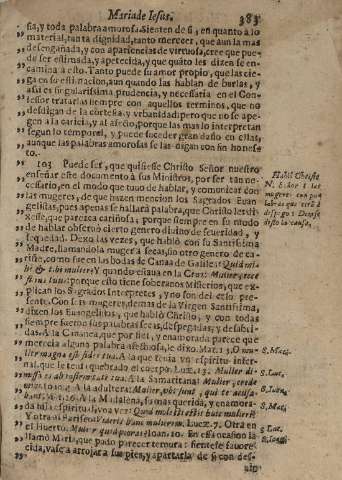 Maria de Iesus. 383
sia, y toda palabra amorosa. Sienten de si, en quanto à lo
material, tanta dignidad, tanto merecer, que aun la mas
desengañada, y con apariencias de virtuosa, cree que pue-
de ser estimada, y apetecida, y que quãto les dizen se en-
camina à esto. Tanto puede su amor propio, que las cie-
ga en su estimacion, aun quando las hablan de burlas, y
assi es singularissima prudencia, y necessaria en el Con-
fessor tratarlas siempre con aquellos terminos, que no
desdigan de la cortesia, y vrbanidad; pero que no se ape-
gen a la caricia, y al afecto, porque las mas lo interpretan
segun lo temporel, y puede suceder gran daño en ellas,
aunque las palabras amorosas se las digan con fin honesto
to.
103 Puede ser, que quisiesse Christo Señor nuestro
enseñar este documento à sus Ministros, por ser tan ne-
cessario, en el modo que tuuo de hablar, y comunicar con
las mugeres, de que hazen mencion los Sagrados Euan-
gelistas, pues apenas se hallarà palabra, que Christo les di-
xesse, que parezca cariñosa; porque siempre en su modo
de hablar obseruò cierto genero diuino de seueridad, y
sequedad. Dexo las vezes, que hablò con su Santissima
Madre, llamandola muger à secas, sin otro genero de ca-
riño, como fue en las bodas de Canaa de Galilea: Quid mi-
hi & tibi mulier? Y quando estaua en la Cruz: Mulier, ecce
filius tuus: porque esto tiene soberanos Misterios, que ex-
plican los Sagrados Interpretes, y no son del caso pre-
sente. Con las mugeres, demas de la Virgen Santissima,
dizen los Euangelistas, que hablò Christo, y con todas
siempre fueron sus palabras secas, despegadas, y desabri-
das. A la Cananea, que por fiel, y enamorada parece que
merecia alguna palabra afectuosa, le dixo. Mat. 15. O mu-
lier magna est fides tua. A la que tenia vn espiritu infer-
nal, que le tenia quebrado el cuerpo. Luc. 13. Mulier di-
missa es ab infirmitate tua. A la Samaritana: Mulier, crede
A la adultera: Mulier, vbi sunt, qui te accusa-
A la Madalena, su mas querida, y enamora-
da hija espiritual, vna vez: Quid molesti estis huic mulieri?
Y otra Luc. 7. Otra en
el Huerto. Mulier quid ploras? Ioan. 20. En esta ocasion la
llamò Maria, que pudo parecer ternura: sientese fauore-
cida, vase à arrojar à sus pies, y apartarla de si con des-
Hablò Christo
N. Señor à las
mugeres con pa-
labras que tirã à
despego: Dense
dello la causa.
S. Mat.
S. Luc.
S. Iuan.
S. Mat.
S. Luc.
S. Ioan.